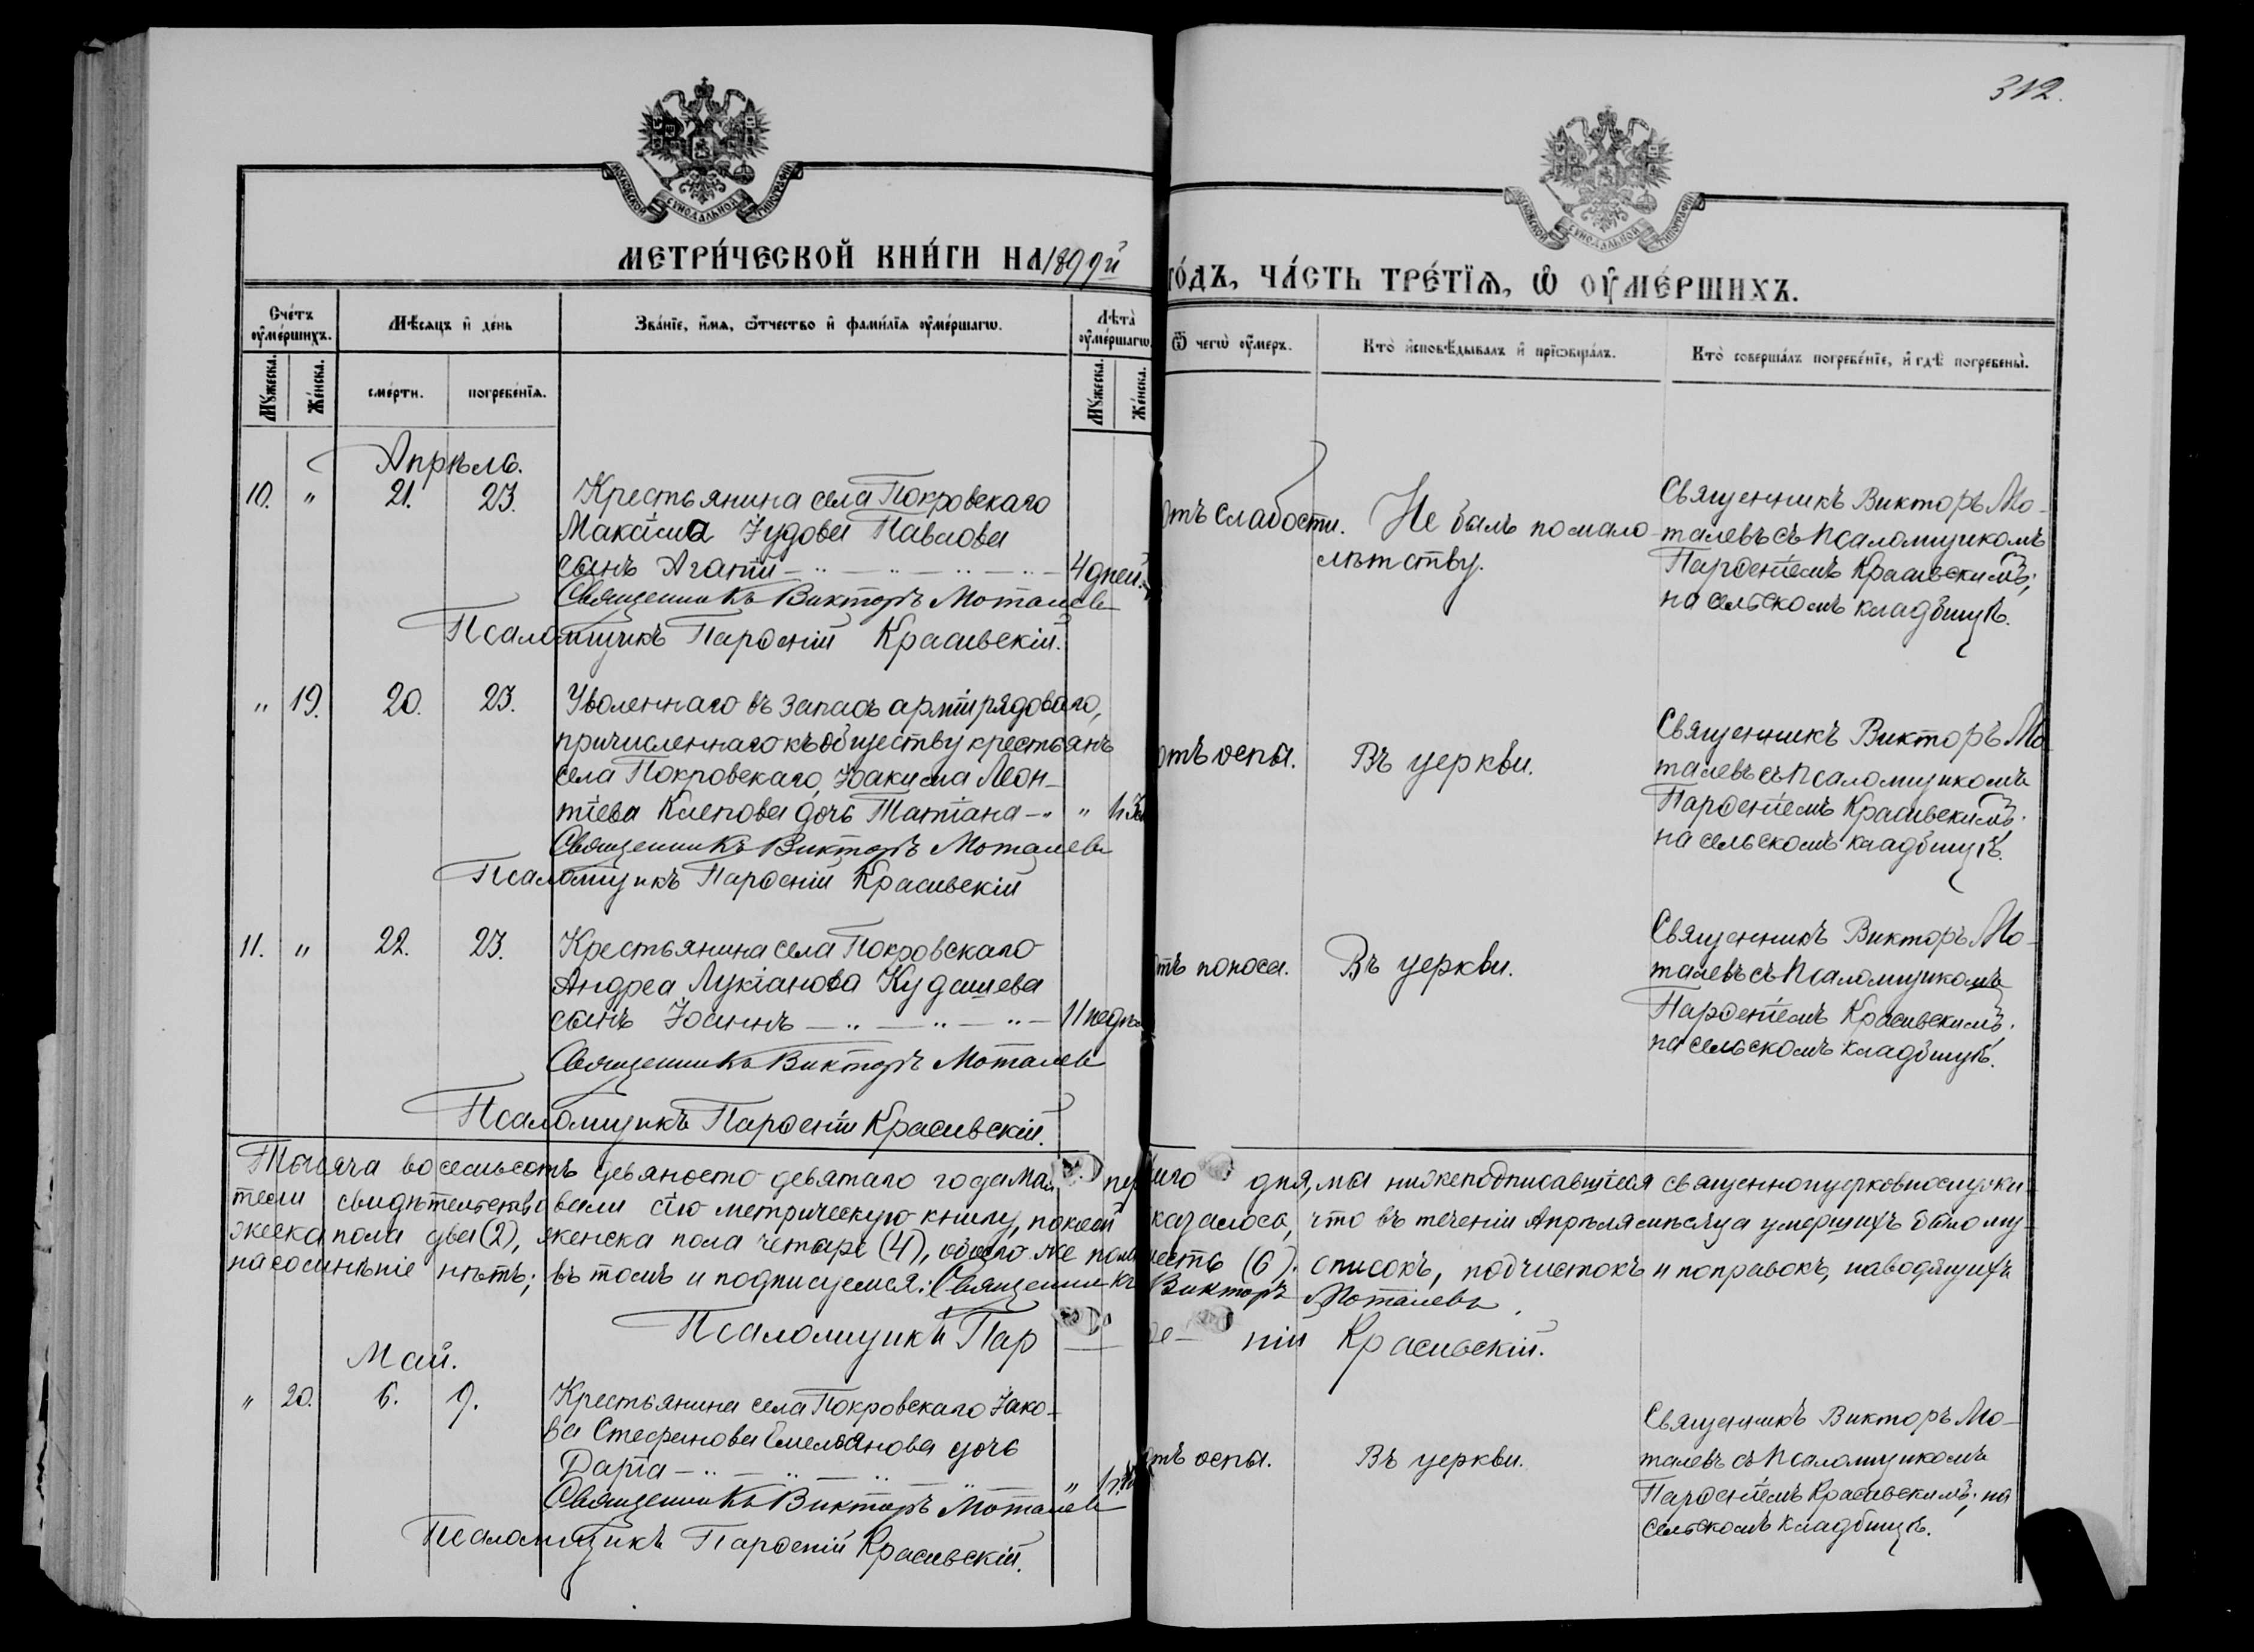 312.
МОСКОВСКОЙ СѴНОДАЛЬНОЙ ТИПОГРАФІИ
МОСКОВСКОЙ СѴНОДАЛЬНОЙ ТИПОГРАФІИ
МЕТРИ́ЧЕСКОЙ КНИ́ГИ НА 1899й
ГО́ДЪ, ЧА́СТЬ ТРЕ́ТЇѦ, Ѽ ОУ҆МЕ́РШИХЪ.
Сче́тъ оу҆ме́ршихъ.
Мѣ́сяцъ и҆ де́нь
Зва́нїе, и҆́мѧ, ѻ҆́тчество и҆ фами́лїѧ оу҆ме́ршагѡ.
Лѣ́та оу҆ме́ршагѡ.
Ѿ чегѡ̀ оу҆́меръ.
Кто̀ и҆сповѣ́дывалъ и҆ прїѡбща́лъ.
Кто̀ соверша́лъ погребе́нїе, и҆ гдѣ̀ погребены̀.
Мꙋ́жеска.
Же́нска.
сме́рти.
погребе́нїѧ.
Мꙋ́жеска.
Же́нска.
Апрѣль.
10. " 21. 23. Крестьянина села Покровскаго
Максима Іудова Павлова
сынъ Агапій 4 дней.
Священникъ Викторъ Моталевъ
Псаломщикъ Парѳеній Красивскій.
отъ слабости. Не былъ по мало-
лѣтству.
Священникъ Викторъ Мо-
талевъ съ псаломщикомъ
Парѳеніемъ Красивскимъ;
на сельскомъ кладбищѣ.
" 19. 20. 23. Уволеннаго въ запасъ арміи рядоваго,
причисленнаго къ обществу крестьянъ
села Покровскаго, Іоакима Леон-
тіева Клепова дочь Татіана "
Священникъ Викторъ Моталевъ
Псаломщикъ Парѳеній Красивскій
отъ оспы. Въ церкви.
Священникъ Викторъ Мо-
талевъ съ псаломщикомъ
Парѳеніемъ Красивскимъ;
на сельскомъ кладбищѣ.
11. " 22. 23. Крестьянина села Покровскаго
Андрея Лукіанова Кудашева
сынъ Іоаннъ 11 недѣль
Священникъ Викторъ Моталевъ
Псаломщикъ Парѳеній Красивскій.
отъ поноса. Въ церкви.
Священникъ Викторъ Мо-
талевъ съ псаломщикомъ
Парѳеніемъ Красивскимъ;
на сельскомъ кладбищѣ.
Тысяча восемьсотъ девяносто девятаго года мая перваго дня, мы нижеподписавшіеся священноцерковнослужи-
тели свидѣтельствовали сію метрическую книгу, по коей оказалось, что въ теченіи Апрѣля мѣсяца умершихъ было му-
жеска пола два (2), женска пола четыре (4), обоего же пола шесть (6). описокъ, подчистокъ и поправокъ, наводящихъ
на сомнѣніе нѣтъ; въ томъ и подписуемся: Священникъ Викторъ Моталевъ
Псаломщикъ Парѳеній Красивскій.
Май.
" 20. 6. 9. Крестьянина села Покровскаго Іако-
ва Стефанова Емельянова дочь
Дарія "
Священникъ Викторъ Моталевъ
Псаломщикъ Парѳеній Красивскій.
отъ оспы. Въ церкви.
Священникъ Викторъ Мо-
талевъ съ псаломщикомъ
Парѳеніемъ Красивскимъ; на
сельскомъ кладбищѣ.